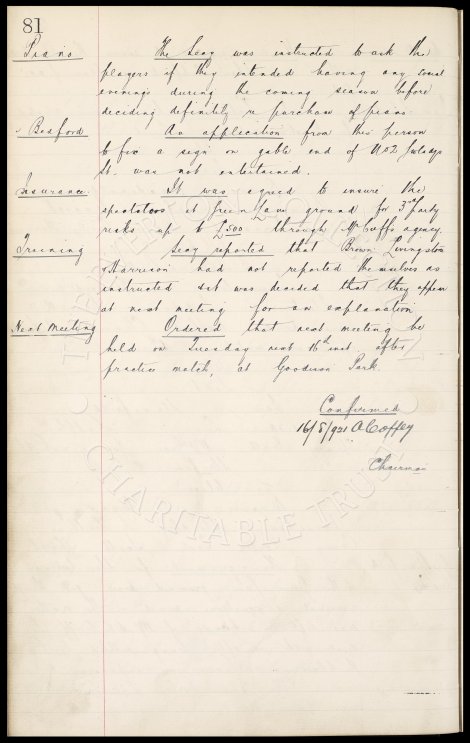 81
Piano The Secy was instructed to ask the
players if they intended having any social
evenings during the coming season before
deciding definitely re purchase of piano
Bedford An application from this person
to fix a sign on gable end of No 2
St. was not entertained.
Insurance. It was agreed to insure the
spectators at Green Lane ground for 3rd party
risks up to £500 through Mr Cuffs agency.
Training Secy reported that Brown Livingston
& Harrison had not reported themselves as
instructed & it was decided that they appear
at next meeting for an explanation
Next Meeting Ordered that next meeting be
held on Tuesday next 16th inst, after
practice match, at Goodison Park.
Confirmed
16/8/921 A Coffey
Chairman
CHARITABLE TRUST